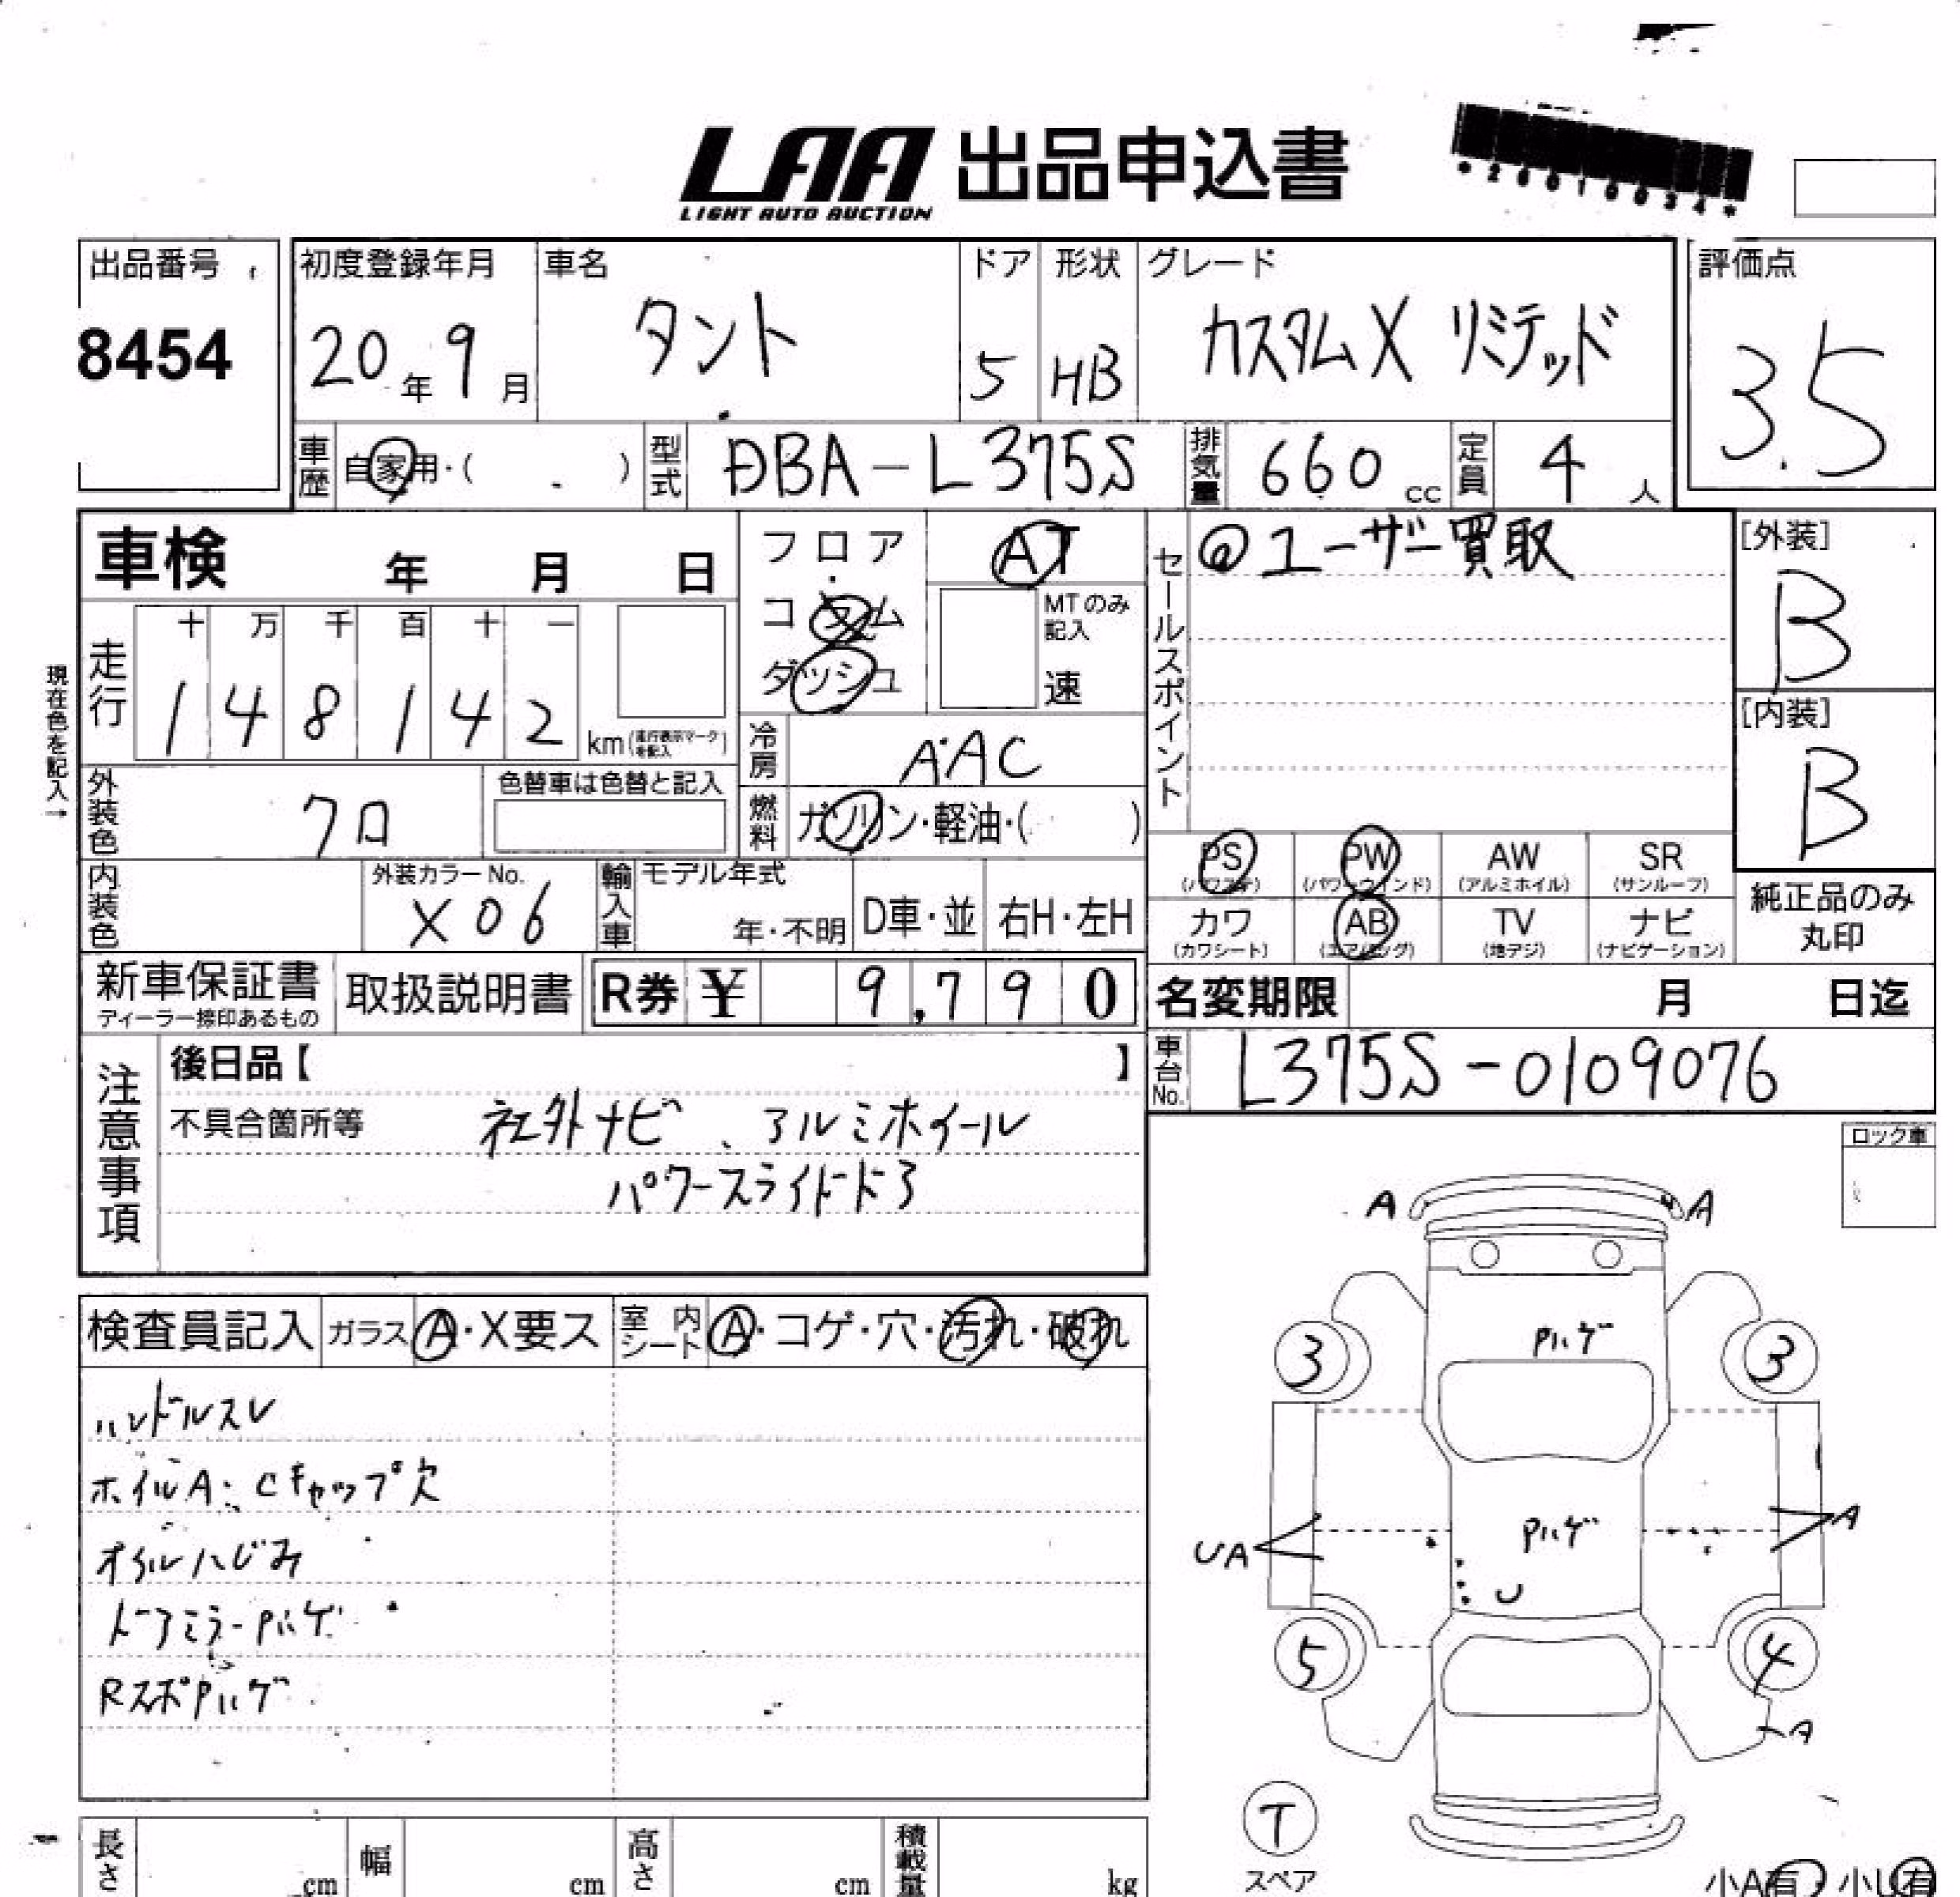 LAA 出品申込書
LIGHT AUTO AUCTION
*20010034*
出品番号
8454
初度登録年月
20年9月
車名
タント
ドア
5
形状
HB
グレード
カスタムX リミテッド
評価点
3.5
車歴
自家用・( )
型式
DBA-L375S
排気量
660 cc
定員
4 人
車検 年 月 日
フロア・コラム
ダッシュ
AT
MTのみ記入
速
セールスポイント
@ユーザー買取
[外装]
B
[内装]
B
現在色を記入→
走行
十 万 千 百 十 一
1 4 8 1 4 2
km(走行表示マークを記入)
冷房
AAC
燃料
ガソリン・軽油・( )
外装色
クロ
色替車は色替と記入
内装色
外装カラーNo.
X06
輸入車
モデル年式
年・不明
D車・並
右H・左H
PS
(パワステ)
PW
(パワーウインド)
AW
(アルミホイル)
SR
(サンルーフ)
カワ
(カワシート)
AB
(エアバッグ)
TV
(地デジ)
ナビ
(ナビゲーション)
純正品のみ
丸印
新車保証書
ディーラー捺印あるもの
取扱説明書
R券 ¥ 9,790
名変期限 月 日迄
車台No.
L375S-0109076
注意事項
後日品【 】
不具合箇所等
社外ナビ、アルミホイール
パワースライドドア
ロック車
検査員記入
ガラス A・X要ス
室内シート A・コゲ・穴・汚れ・破れ
ハンドルスレ
ホイルA・Cキャップ欠
オイルハじみ
ドアミラーPハゲ
RスポPハゲ
A
A
Pハゲ
3
3
Pハゲ
UA
A
U
5
4
A
T
スペア
小A有・小U有
長さ cm
幅 cm
高さ cm
積載量 kg